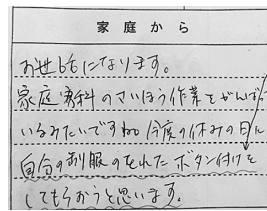 家庭から
お世話になります。
家庭家科のさいほう作業をがんばって
いるみたいですね。今度の休みの日に
自分の制服のとれたボタン付けを
してもらおうと思います。